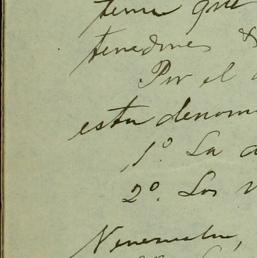 tema que
tenedores
Por el
esta denom
1º. La
2º. Los
Venezuela,